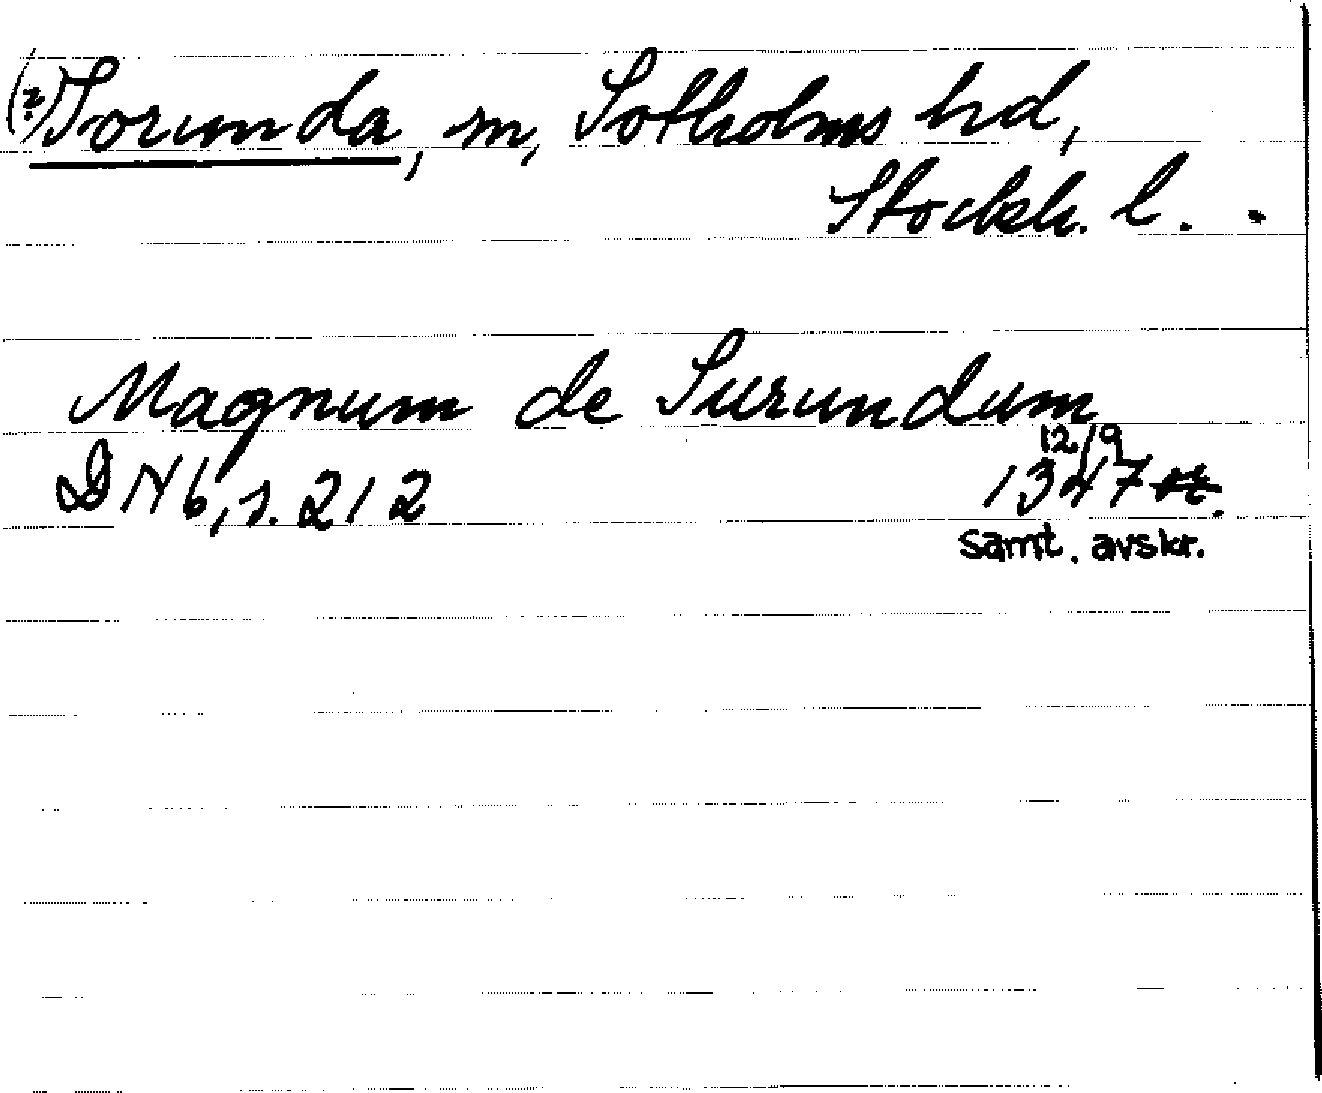 (?) Sorunda, sn, Sotholms hd,
Stockh. l.
Magnum de Surundum
12/9
DN 6, s. 212 1347
samt. avskr.